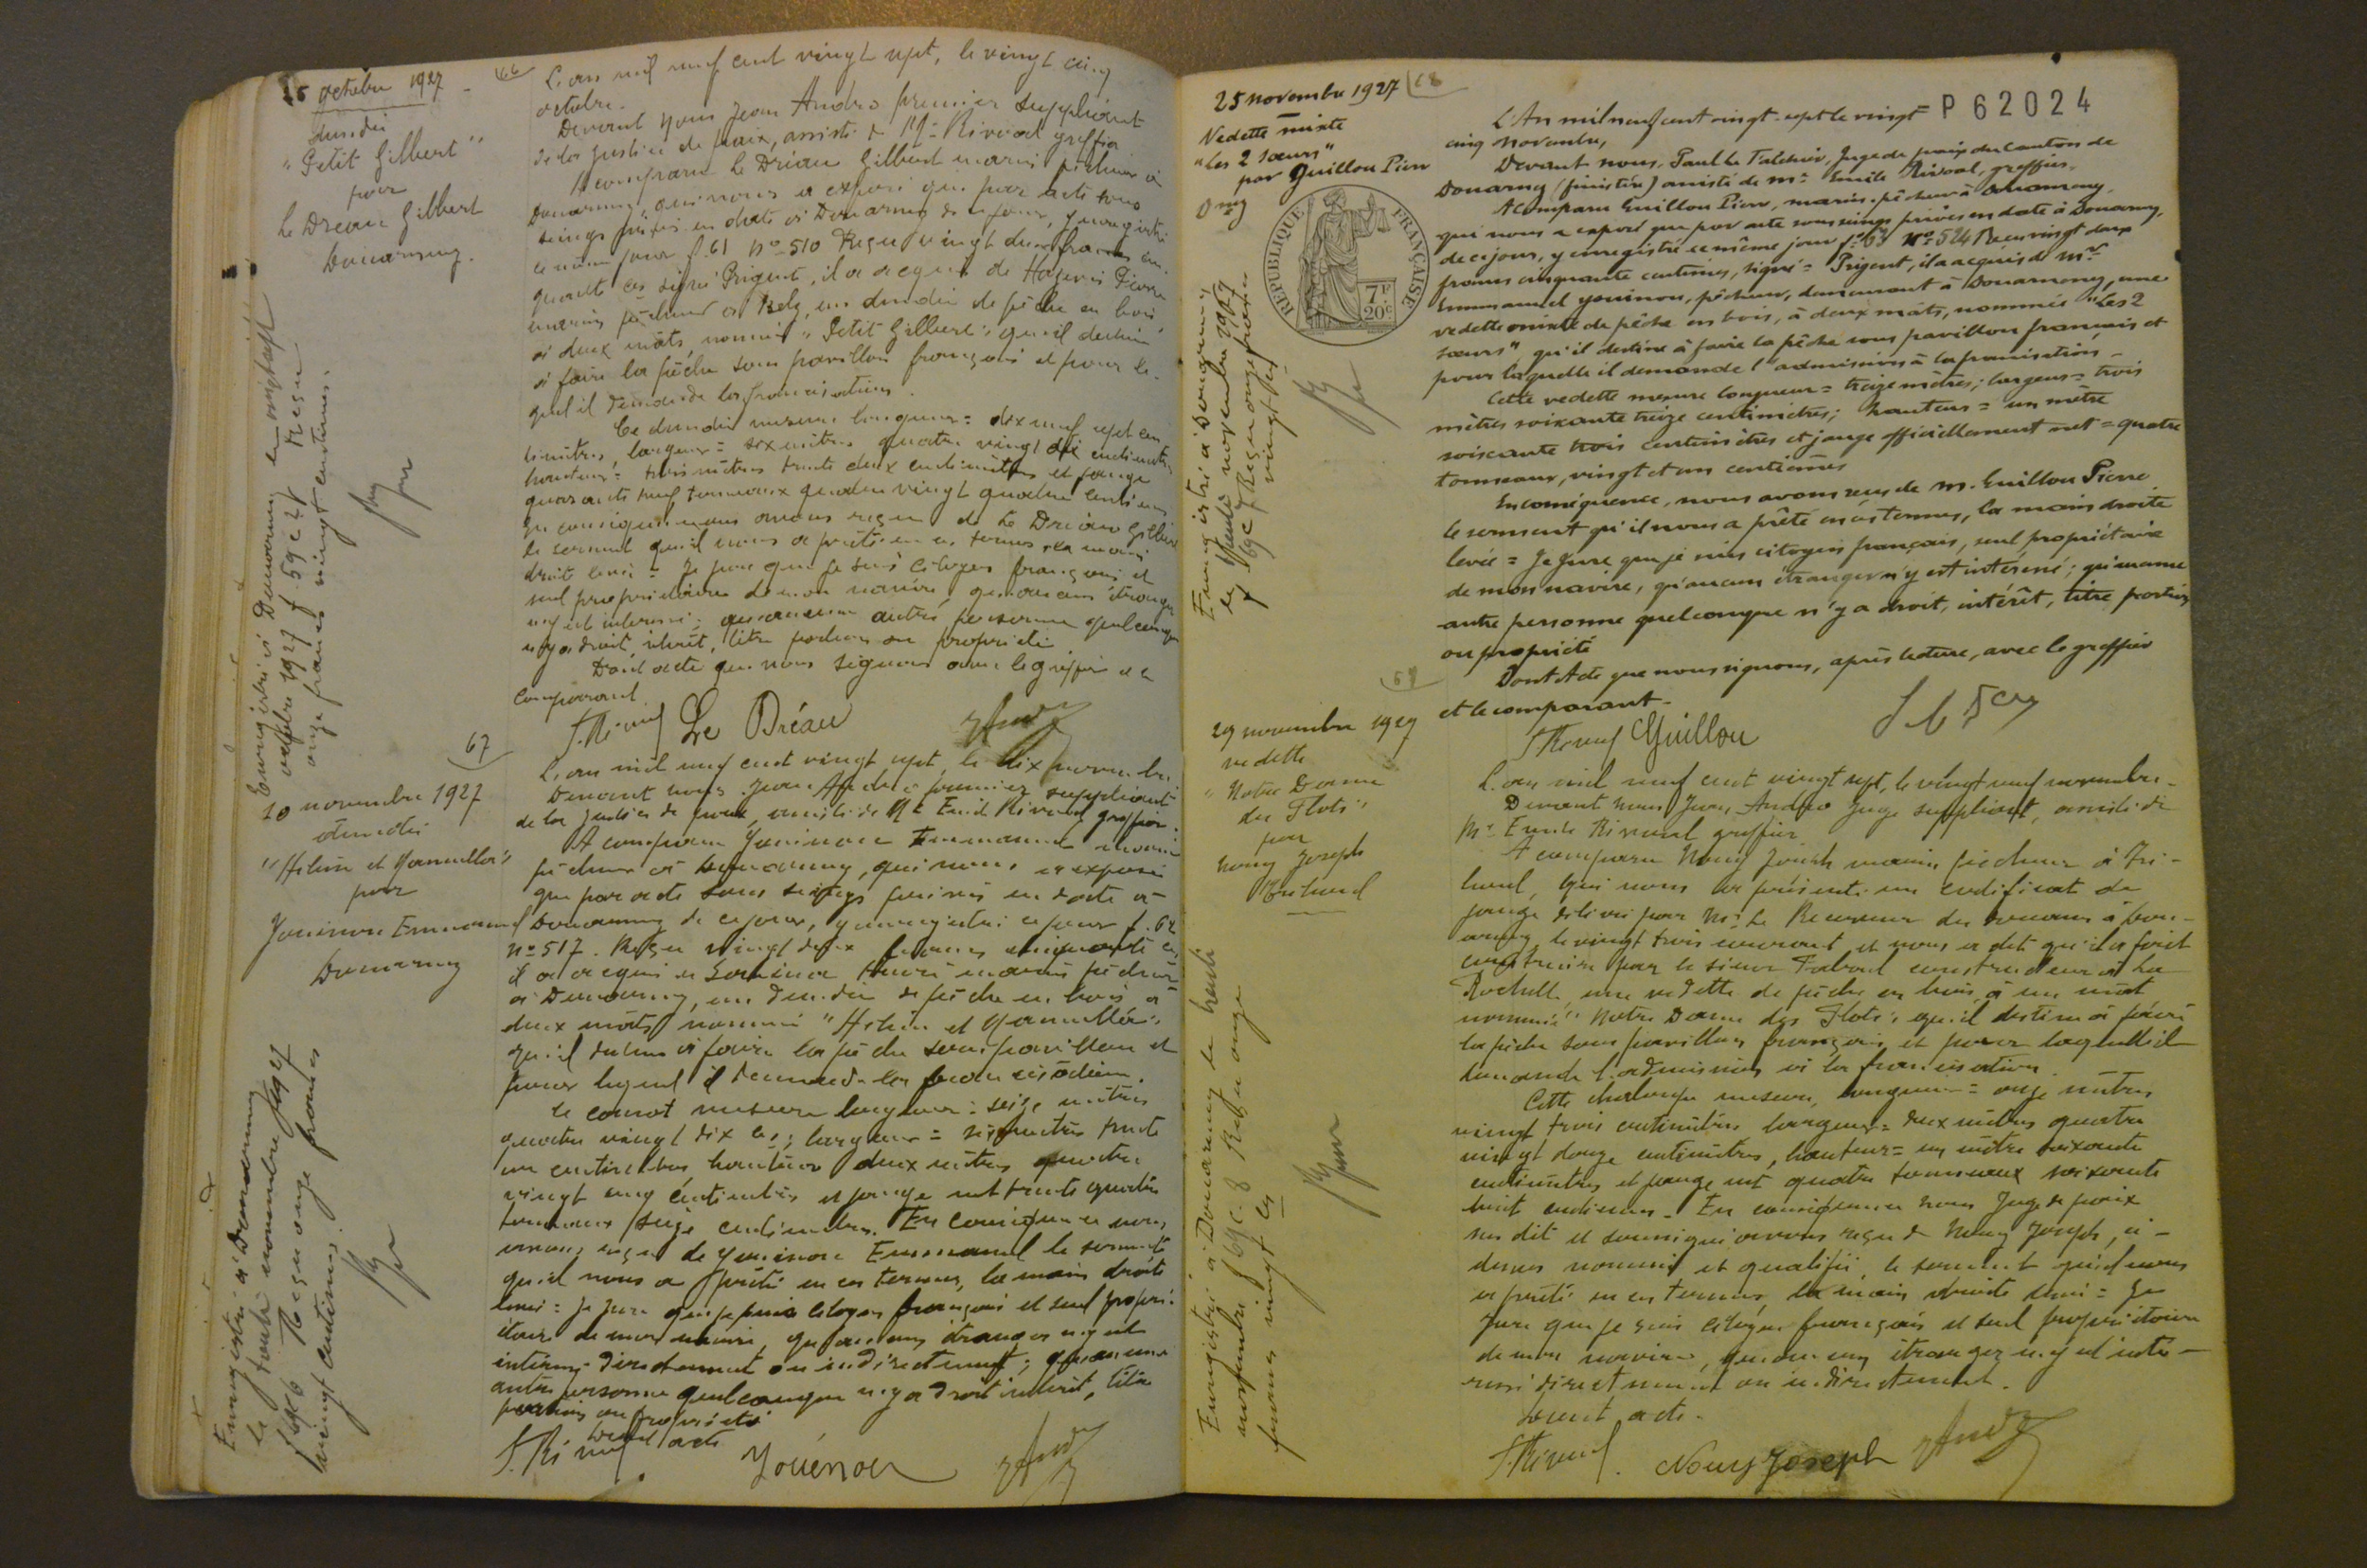 25 octobre 1927
dundée
"Petit Gilbert"
pour
Le Dréau Gilbert
Douarnenez.
Enregistré à Douarnenez le vingt sept
octobre 1927 f. 59 c 24 Reçu
onze francs vingt centimes.
66
L'an mil neuf cent vingt sept, le vingt cinq
octobre.
Devant nous Jean Andro premier suppléant
de la justice de paix, assisté de Me Rivoal greffier
A comparu Le Dréau Gilbert marin pêcheur à
Douarnenez, qui nous a exposé que par acte sous
seings privés en date à Douarnenez de ce jour, y enregistré
le même jour f. 61 No 510 Reçu vingt deux francs cin-
quante ces signé Prigent, il a acquis de Pierre
marin pêcheur à Belz, un dundée de pêche en bois,
à deux mâts, nommé "Petit Gilbert", qu'il destine
à faire la pêche sous pavillon français et pour le-
quel il demande la francisation.
Ce dundée mesure longueur = dix neuf sept cen
timètres, largeur = six mètres quatre vingt dix centimètres
hauteur = trois mètres trente deux centimètres et jauge
quarante neuf tonneaux quatre vingt quatre centièmes
En conséq. nous avons reçu de Le Dréau Gilbert
le serment qu'il nous a prêté en ces termes, la main
droite levée = Je jure que je suis citoyen français et
seul propriétaire de mon navire, qu'aucun étranger
n'y est intéressé; qu'aucune autre personne quelconque
n'y a droit, intérêt, titre portion ou propriété
Dont acte que nous signons avec le greffier et le
comparant
Le Dréau
67
10 novembre 1927
dundée
"Hélène et Yannulla"
pour
Youinou Emmanuel
Douarnenez
Enregistré à Douarnenez
le trente novembre 1927
f 69 c 6 Reçu onze francs
vingt centimes.
L'an mil neuf cent vingt sept, le dix novembre
Devant nous Jean Andro premier suppléant
de la justice de paix, assisté de Me Emile Rivoal greffier.
A comparu Youinou Emmanuel marin
pêcheur à Douarnenez, qui nous a exposé
que par acte sous seings privés en date à
Douarnenez de ce jour, y enregistré ce jour f. 62
No 517. Reçu vingt deux francs cinquante ces
il a acquis de marin pêcheur
à Douarnenez, un dundée de pêche en bois à
deux mâts nommé "Hélène et Yannulla",
qu'il destine à faire la pêche sous pavillon et
pour lequel il demande la francisation.
Le canot mesure longueur : seize mètres
quatre vingt dix ces; largeur = six mètres trente
un centimètres, hauteur deux mètres quatre
vingt cinq centimètres et jauge net trente quatre
tonneaux seize centimètres. En conséquence nous
avons reçu de Youinou Emmanuel le serment
qu'il nous a prêté en ces termes, la main droite
levée = Je jure que je suis citoyen français et seul propri-
étaire de mon navire, qu'aucun étranger n'y est
intéressé directement ou indirectement; qu'aucune
autre personne quelconque n'y a droit intérêt, titre
portion ou propriété
Dont acte
Youénou
25 novembre 1927
68
Vedette mixte
"Les 2 sœurs"
par Guillou Pierre
Dnez
RÉPUBLIQUE FRANÇAISE
7F
20c
Enregistré à Douarnenez
le trente novembre 1927
f. 69 c 7 Reçu onze francs
vingt ces
P 62024
L'An mil neuf cent vingt-sept le vingt-
cinq Novembre,
Devant nous, Paul Le Talchoir, Juge de paix du Canton de
Douarnez (finistère) assisté de Me Emile Rivoal, greffier.
A Comparu Guillou Pierre, marin-pêcheur à Douarnenez
qui nous a exposé que par acte sous seings privés en date à Douarnez,
de ce jour, y enregistré ce même jour fo 63 No 524 Reçu vingt deux
francs cinquante centimes, signé = Prigent, il a acquis de Mr
Emmanuel Youinou, pêcheur, demeurant à Douarnenez, une
vedette mixte de pêche en bois, à deux mâts, nommée "Les 2
sœurs", qu'il destine à faire la pêche sous pavillon français et
pour laquelle il demande l'admission à la francisation -
Cette vedette mesure longueur = treize mètres; largeur = trois
mètres soixante treize centimètres; hauteur = un mètre
soixante trois centimètres et jauge officiellement net = quatre
tonneaux, vingt et un centièmes
En conséquence, nous avons reçu de M. Guillou Pierre
le serment qu'il nous a prêté en ces termes, la main droite
levée = Je jure que je suis citoyen français, seul propriétaire
de mon navire, qu'aucun étranger n'y est intéressé; qu'aucune
autre personne quelconque n'y a droit, intérêt, titre portion
ou propriété
Dont Acte que nous signons, après lecture, avec le greffier
et le comparant -
Guillou
69
29 novembre 1927
vedette
"Notre Dame
des Flots"
par
Noury Joseph
Tréboul
Enregistré à Douarnenez le trente
novembre f 69 c. 8 Reçu onze
francs vingt ces
L'an mil neuf cent vingt sept, le vingt neuf novembre -
Devant nous Jean Andro Juge suppléant, assisté de
Me Emile Rivoal greffier
A comparu Noury Joseph marin pêcheur à Tré-
boul, qui nous a présenté un certificat de
jauge délivré par Mr Le Receveur des Douanes à Dou-
arnez, le vingt trois courant et nous a dit qu'il a fait
construire par le sieur constructeur à La
Rochelle, une vedette de pêche en bois à un mât
nommée "Notre Dame des Flots", qu'il destine à faire
la pêche sous pavillon français et pour laquelle il
demande l'admission à la francisation.
Cette chaloupe mesure, longueur = onze mètres
vingt trois centimètres largeur = deux mètres quatre
vingt douze centimètres, hauteur = un mètre soixante
centimètres et jauge net quatre tonneaux soixante
huit centièmes - En conséquence nous Juge de paix
sus dit et soussigné avons reçu de Noury Joseph, ci-
dessus nommé et qualifié, le serment qu'il nous
a prêté en ces termes, la main droite levée = Je
jure que je suis citoyen français et seul propriétaire
de mon navire, qu'aucun étranger n'y est inté-
ressé directement ou indirectement.
Dont acte.
Noury Joseph